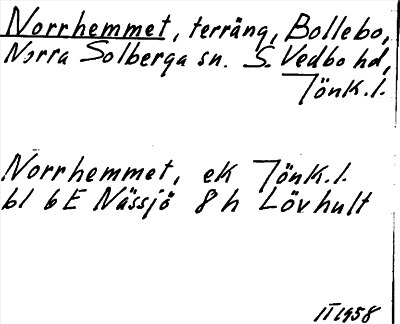 Norrhemmet, terräng, Bollebo,
Norra Solberga sn. S. Vedbo hd,
Jönk. l.
Norrhemmet, ek Jönk. l.
bl 6E Nässjö 8h Lövhult
II 1958